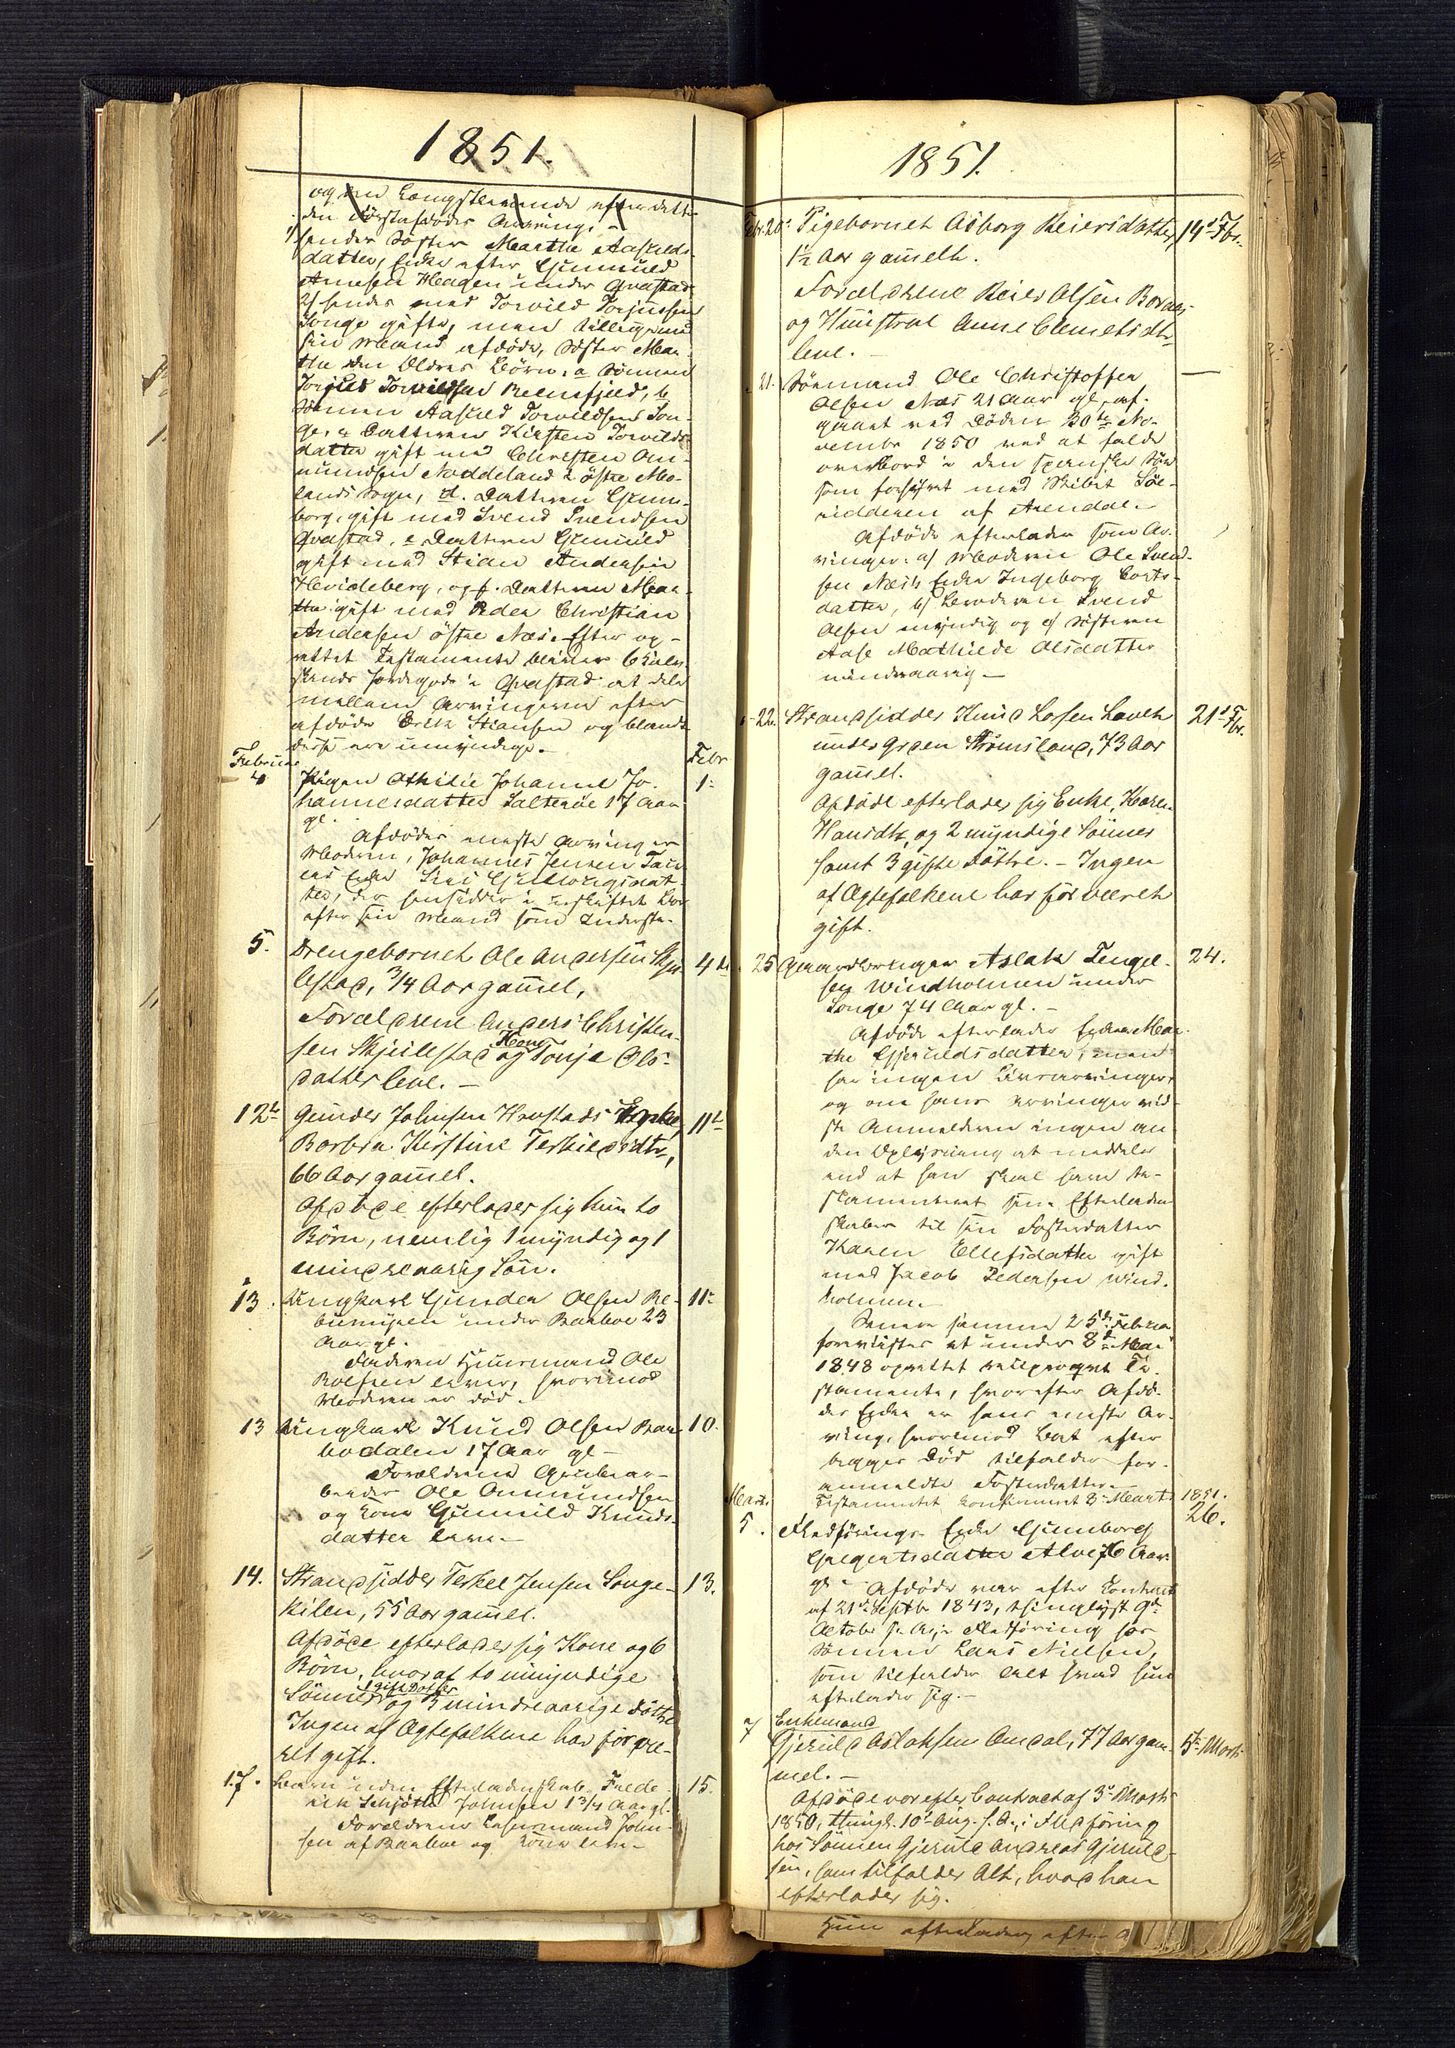 1851.
og den Længstlevende efter dette
den Førstafdødes Arvinger
1/ hendes Søster Marthe Aaslids-
datter, Enke efter Gunnuld
Arnesen Hagen under Qvastad
2/ hendes med Torvild Torjussen
Songe gifte, men tilligemed
sin Mand afdøde, Søster Mar-
the den Ældres Børn: a Sønnen
Torjus Torvildsen Reinefjeld, b
Sønnen Aaslid Torvildsen Son-
ge, c Datteren Kirsten Torvilds-
datter gift med Christen Am-
mundsen Noddeland i østre Mo-
lands Sogn, d. Datteren Gun-
borg, gift med Svend Svendsen
Qvastad, e Datteren Gunnild
gift med Stian Andersen
Heideberg, og f. Datteren Mar-
the gift med Peder Christian
Andersen østre Næs. Efter op-
rettet Testamente bliver
Jordegods i Qvastad at dele
mellem Arvingerne efter
afdøde Erik Stiansen og blandt
disse ere umyndige.
Februar Febr
4 Pigen Othilie Johanne Jo- 1
hannesdatter Salterøe 17 Aar
gl.
Afdødes eneste Arving er
Moderen, Johannes Jensen
Enke Siri
der hensidder i uskiftet Boe
efter sin Mand som Inderste.
5. Drengebarnet Ole Andersen Skjei- 4de
lestad, 3/4 Aar gammel,
Forældrene Anders Christen-
sen Skjeilestad og Kone Tonje Ols-
datter leve.
12te Gunder Johnsen Krustads Enke, 11te
Barbra Kirstine Terkildsdtr,
66 Aar gammel.
Afdøde efterlader sig kun to
Børn, nemlig 1 myndig og 1
mindreaarig Søn.
13. Ungkarl Gunder Olsen Re- 11te
under Barboe 23
Aar gl.
Faderen Huusmand Ole
Rolfsen lever, hvorimod
Moderen er død.
13 Ungkarl Knud Olsen Bar- 10.
bodalen 17 Aar gl
Forældrene Grubear-
beider Ole Ommundsen
og Kone Gunnild Knuds-
datter lever
14. Strandsidder Terkel Jensen Songe- 13.
kilen, 55 Aar gammel.
Afdøde efterlader sig Kone og 6
Børn, hvoraf to umyndige
Sønner, 1 gift Datter og 3 mindreaarige Døttre
Ingen af Ægtefolkene har før væ-
ret gift.
17. Barn uden Efterladenskab Frede- 15.
rik Schjøtt Johnsen 1 3/4 Aar gl.
Forældrene Losermand John-
sen af Barboe og Kone leve

1851.
Febr. 20de Pigebarnet Asborg Reiersdatter, 19de Fbr.
1½ Aar gammelt.
Forældrene Reier Olsen Boraas
og Hustrue Anne Clemetsdtr
leve.
21. Sømand Ole Christoffer —
Olsen Næs 21 Aar gl, af-
gaaet ved Døden 30te No-
vember 1850 ved at falde
overbord i den spanske Søe
som forhyret med Skibet Søe-
ridderen af Arendal.
Afdøde efterlader som Ar-
vinger: a/ Moderen Ole Svend-
sen Næs's Enke Ingeborg Corts-
datter, b/ Broderen Svend
Olsen myndig og c/ Søsteren
Aase Mathilde Olsdatter
mindreaarig
22. Strandsidder Knud Larsen Lovet 21de Fbr.
under Grøn Strømsland, 73 Aar
gammel.
Afdøde efterlader sig Enke, Karen
Hansdtr, og 2 myndige Sønner
samt 3 gifte Døttre. – Ingen
af Ægtefolkene har før været
gift.
25 Gaardbruger Aslak Tengel- 24.
sen Windholmen under
Songe 74 Aar gl.
Afdøde efterlader Enken Mar-
the Gjeruldsdatter, men
har ingen Livsarvinger,
og om hans Arvinger vid-
ste Anmelderen ingen an-
den Oplysning at meddele
end at han skal have te-
stamenteret sine Efterladen-
skaber til sin Fosterdatter
Karen Ellefsdatter gift
med Jacob Pedersen Wind-
holmen.
Senere samme 25de Februar
foreviistes et under 8de Mai
1848 oprettet reciproqve Te-
stamente, hvorefter Afdø-
des Enke er hans eneste Ar-
ving, hvorimod Boet efter
begges Død tilfalder for-
anmeldte Fosterdatter.
Testamentet confirmeret 8de Marts 1851.
Marts
5. Fledførings-Enke Gunborg 26.
Gregertsdatter Alve 76 Aar
gl. Afdøde var efter Contract
af 21de Septbr 1843, thinglyst 9de
October s. A. i Fledføring hos
Sønnen Lars Nielsen,
som tilfalder alt hvad hun
efterlader sig.
7 Enkemand
Gjeruld Aslaksen Omdal, 77 Aar gam- 5te Marts
mel. –
Afdøde var efter Contract af 3de Marts
1850, thingl. 10de Aug. s. A., i Fledføring
hos Sønnen Gjeruld Andreas Gjeruld-
sen, som tilfalder Alt, hvad han
efterlader sig.
Hun efterlader efter